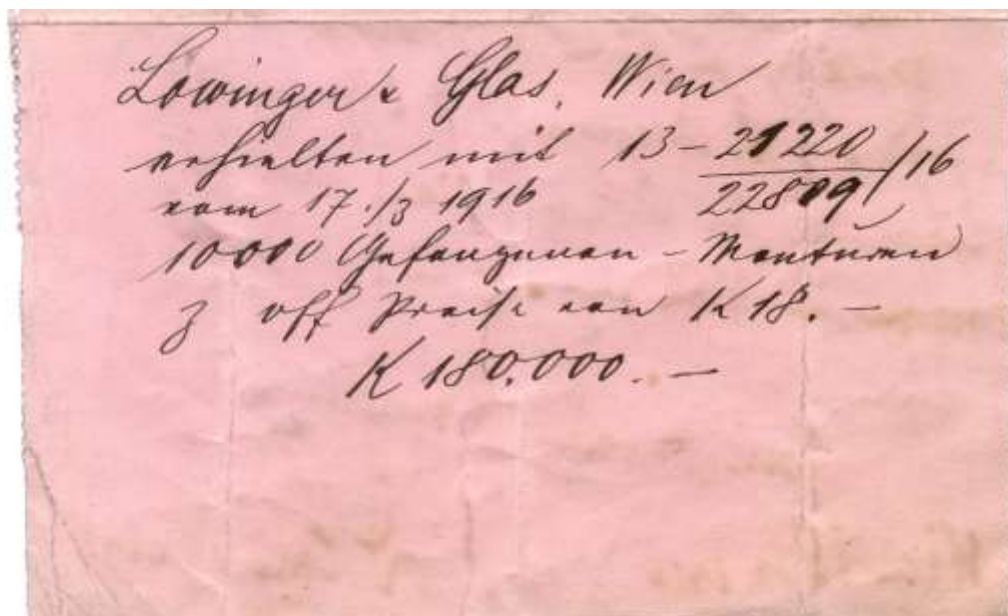 Lowinger & Glas, Wien
erhielten mit 13-21220/16
vom 17./3 1916 22809
10000 Gefangenen-Monturen
z off Preise von K 18.-
K 180.000.-